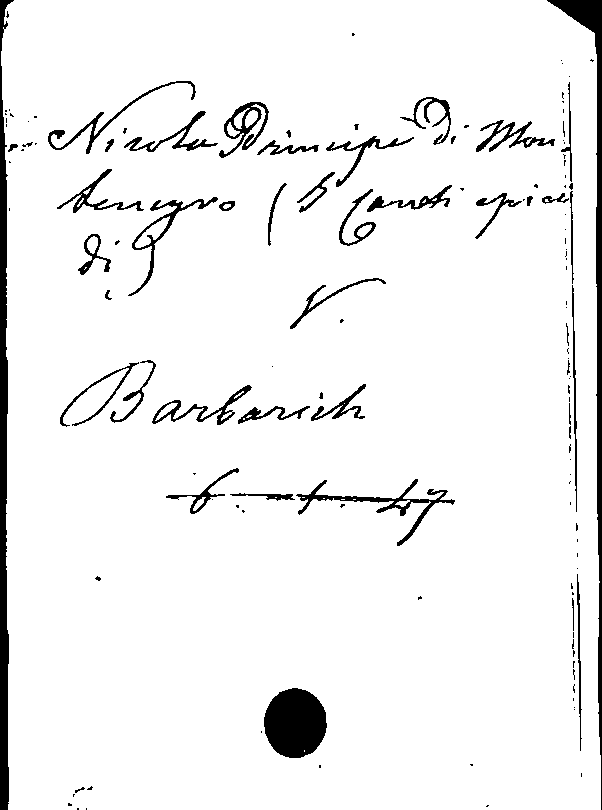 Nicola Principe di Mon-
tenegro (5 Canti epici
di)
V.
Barbarich
6. 1. 47